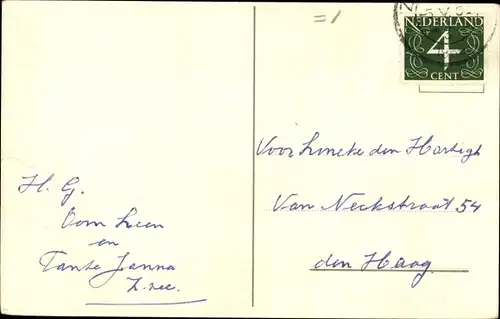 =1
NEDERLAND
4
CENT
H. G.
Oom Leen
en
Tante Janna
Z.zee.
Voor Lineke den Hartigh
Van Neckstraat 54
den Haag.